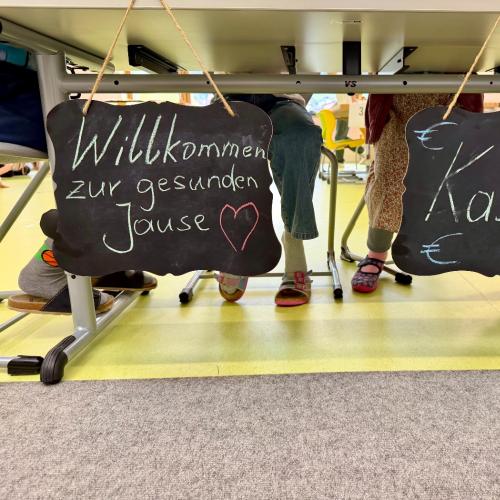 Willkommen
zur gesunden
Jause
€
Ka
€
VS